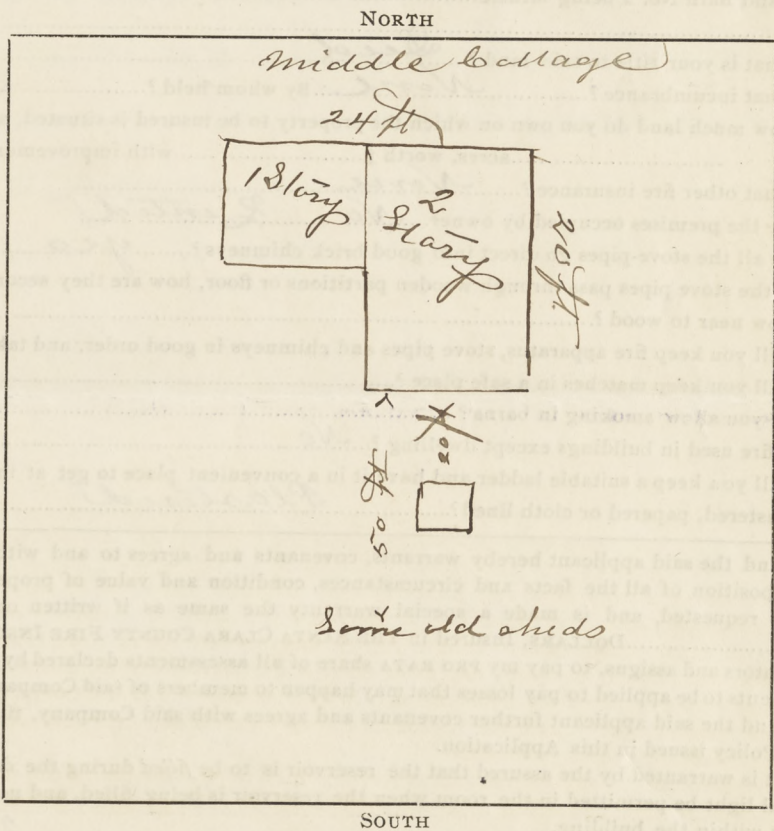 NORTH
Middle Cottage
24 ft
1 Story
2
Story
20 ft
20 ft
50 ft
Some old sheds
SOUTH